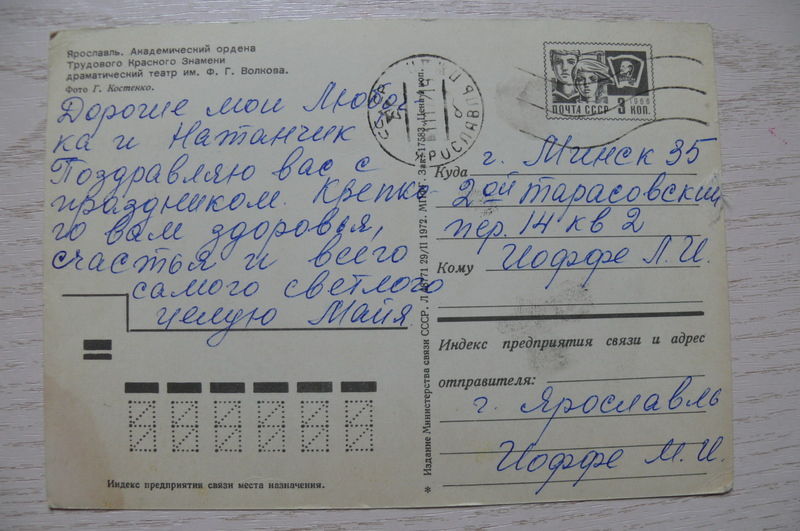 Ярославль. Академический ордена
Трудового Красного Знамени
драматический театр им. Ф. Г. Волкова.
Фото Г. Костенко.
Дорогие мои Любоч
ка и Натанчик
Поздравляю вас с
праздником. Крепко
го вам здоровья,
счастья и всего
самого светлого
Целую Майя
Индекс предприятия связи места назначения.
Издание Министерства связи СССР. 29/II 1972. Зак. 17583. Цена 4 коп.
ЯРОСЛАВЛЬ
ПОЧТА СССР 3 КОП.
1966
Куда г. Минск 35
2ой Тарасовский
пер. 14 кв 2
Кому Иоффе Л.И.
Индекс предприятия связи и адрес
отправителя:
г. Ярославль
Иоффе М.И.